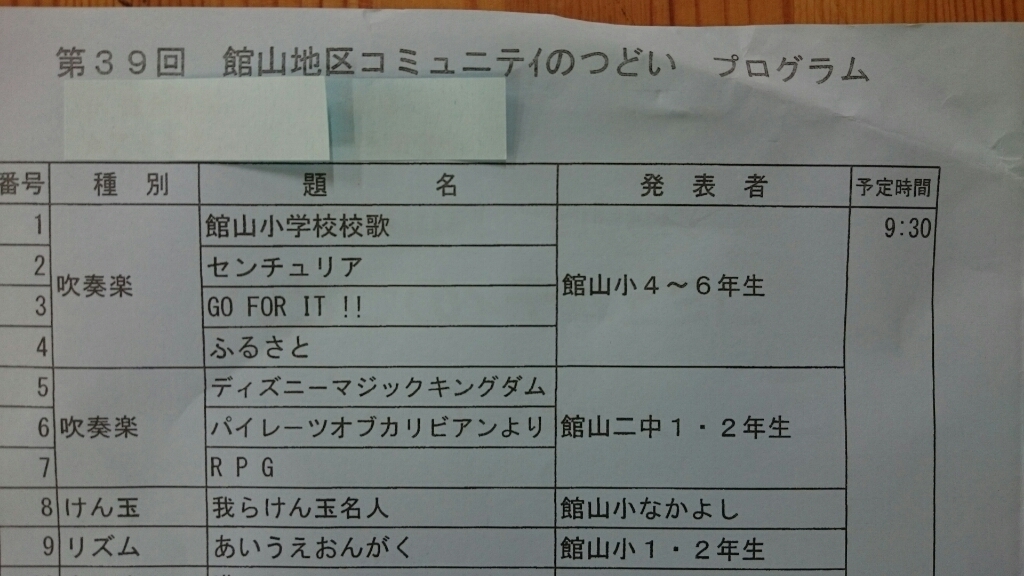 第３９回　館山地区コミュニティのつどい　プログラム
番号　種　別　題　名　発　表　者　予定時間
1　吹奏楽　館山小学校校歌　館山小４～６年生　9:30
2　センチュリア
3　GO FOR IT !!
4　ふるさと
5　吹奏楽　ディズニーマジックキングダム　館山二中１・２年生
6　パイレーツオブカリビアンより
7　ＲＰＧ
8　けん玉　我らけん玉名人　館山小なかよし
9　リズム　あいうえおんがく　館山小１・２年生